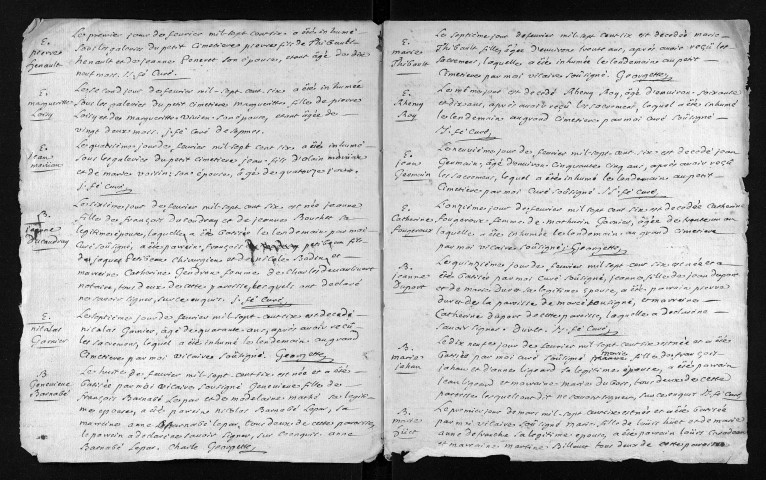 Le premier jour de feuvrier mil-sept-cent-six a été inhumé
E. pierres henault
sous les galeries du petit Cimetiere pierres fils de Thibault
henault et de jeanne Poneret son épouse, etant âgé de dix
neuf mois. J. fé Curé.
Le second jour de feuvrier mil-sept-cent-six a été inhumée
E. marguerite Loisy
sous les galeries du petit cimetiere marguerite filles de pierres
Loisy et de marguerite Vivien son épouse, etant âgée de
vingt deux mois. J. fé Curé de
Le quatriesme jour de feuvrier mil sept cent six a été inhumé
E. jean
sous les galeries du petit cimetiere jean fils d'elain
et de marie voisin son épouse, âgé de quatorze jours.
J. fé Curé
Le sixiesme jour de feuvrier mil-sept-cent-six est née jeanne
B. jeanne Ducoudray
filles de françois du Coudray et de jeanne Bouchet sa
legitime épouse, laquelle a été batisée le lendemain par moi
Curé soussigné, a été parein françois petibeau fils
de jaques petibeau Chirurgien et de nicole Badin, et
mareine Catherine Gendron femme de Charles
notaire, tous deux de cette paroisse, lesquels ont declaré
ne savoir signer, sur ce enquis. J. fé Curé
Le septiesme jour de feuvrier mil-sept-cent-six est decedé
E. nicolas Garnier
nicolas Garnier, âgé de quarante ans, apres avoir reçu
les sacremens, lequel a été inhumé le lendemain au grand
Cimetiere par moi vicaire soussigné. Georgette
Le huit de feuvrier mil-sept-cent-six est née et a été
B. Genevieve Barnabé
batisée par moi vicaire soussigné Genevieve filles de
françois Barnabé Lepar et de madelaine maché sa legiti
me épouse, a été parein nicolas Barnabé Lepar, la
mareine anne Barnabé Lepar, tous deux de cette paroisse,
le parein a declaré ne savoir signer, sur ce enquis. anne
Barnabé Lepar. Charle Georgette
Le septiesme jour de feuvrier mil-sept-cent-six est decedée marie
E. marie Thibault
Thibault filles, âgée d'environ trente ans, apres avoir reçu les
sacremens, laquelle a été inhumée le lendemain au petit
Cimetiere par moi vicaire soussigné. Georgette
Le même jour est decedé Rhemy Roy, âgé d'environ soixante
E. Rhemy Roy
et dix ans, apres avoir reçu les sacremens, lequel a été inhumé
le lendemain au grand Cimetiere par moi Curé soussigné
J. fé Curé
Le neuviesme jour de feuvrier mil-sept-cent-six est decedé jean
E. jean Germain
Germain, âgé d'environ Cinquante cinq ans, apres avoir reçu
les sacremens, lequel a été inhumé le lendemain au petit
Cimetiere par moi Curé soussigné. J. fé Curé
L'onziesme jour de feuvrier mil-sept-cent-six est decedée Catherine
E. Catherine fougeroux
fougeroux, femme de mathurin Garnier, âgée de trente six ans
laquelle a été inhumée le lendemain au grand cimetiere
par moi vicaire soussigné. Georgette
Le quinziesme jour de feuvrier mil-sept-cent-six est née et a
B. jeanne Duport
été batisée par moi Curé soussigné, jeanne filles de jean duport
et de marie Duret sa legitime épouse, a été parein pierre
duret de la paroisse de marcé soussigné, et mareine
Catherine duport de cette paroisse, laquelle a declaré ne
savoir signer. Duret. J. fé Curé
Le dix neuf jour de feuvrier mil-sept-cent-six est née et a été
B. marie jahan
batisée par moi Curé soussigné marie filles de françois
jahan et d'anne Ligeard sa legitime épouse, a été parein
jean Ligeard et mareine marie duBois, tous deux de cette
paroisse, lesquels ont dit ne savoir signer, sur ce enquis. J. fé Curé
Le premier jour de mars mil-sept-cent-six est née et a été batisée
B. marie huet
par moi vicaire soussigné marie filles de Louis huet et de marie
anne defranche sa legitime épouse, a été parein Louis
et mareine martine Billault tous deux de cette paroisse